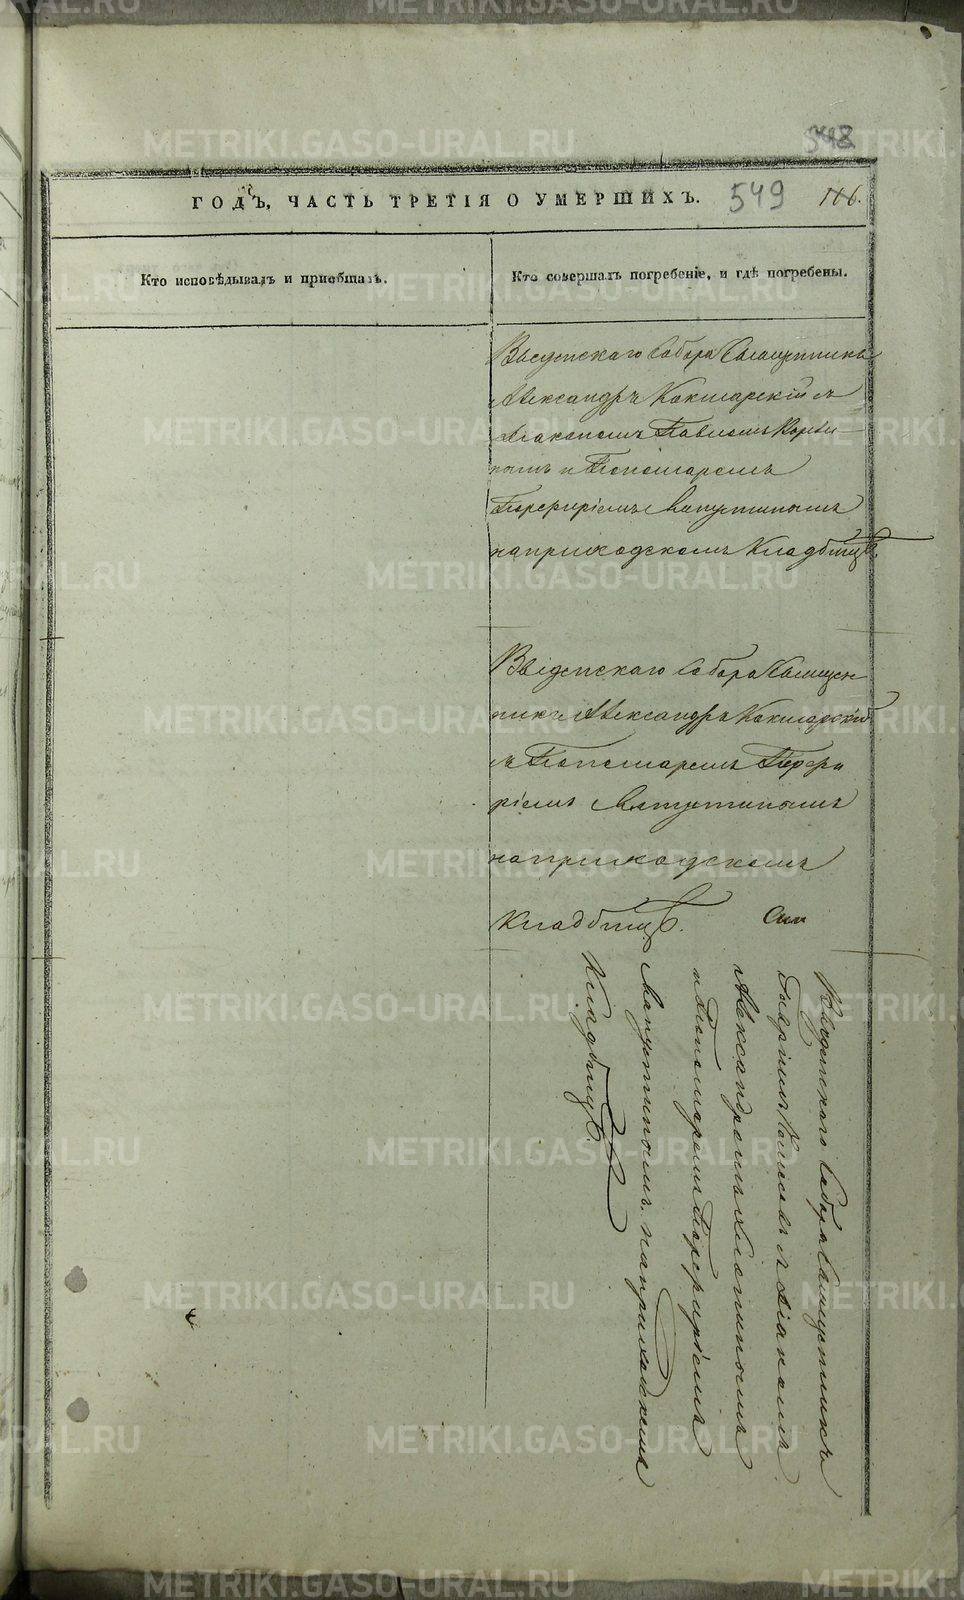 548
ГОДЪ, ЧАСТЬ ТРЕТІЯ О УМЕРШИХЪ. 549 106.
Кто исповѣдывалъ и пріобщалъ.
Кто совершалъ погребеніе, и гдѣ погребены.
Введенскаго Собора Священникъ
Александръ Кокшарскій съ
Діакономъ Павломъ
и Пономаремъ
Порфиріемъ Лапутинымъ
на приходскомъ Кладбищѣ.
Введенскаго Собора Священ
никъ Александръ Кокшарскій
съ Пономаремъ Порфи
ріемъ Лапутинымъ
на приходскомъ
Кладбищѣ.
Введенскаго Собора Священникъ
съ Діакономъ
Александромъ
и Пономаремъ Порфиріемъ
Лапутинымъ на приходскомъ
Кладбищѣ.
METRIKI.GASO-URAL.RU